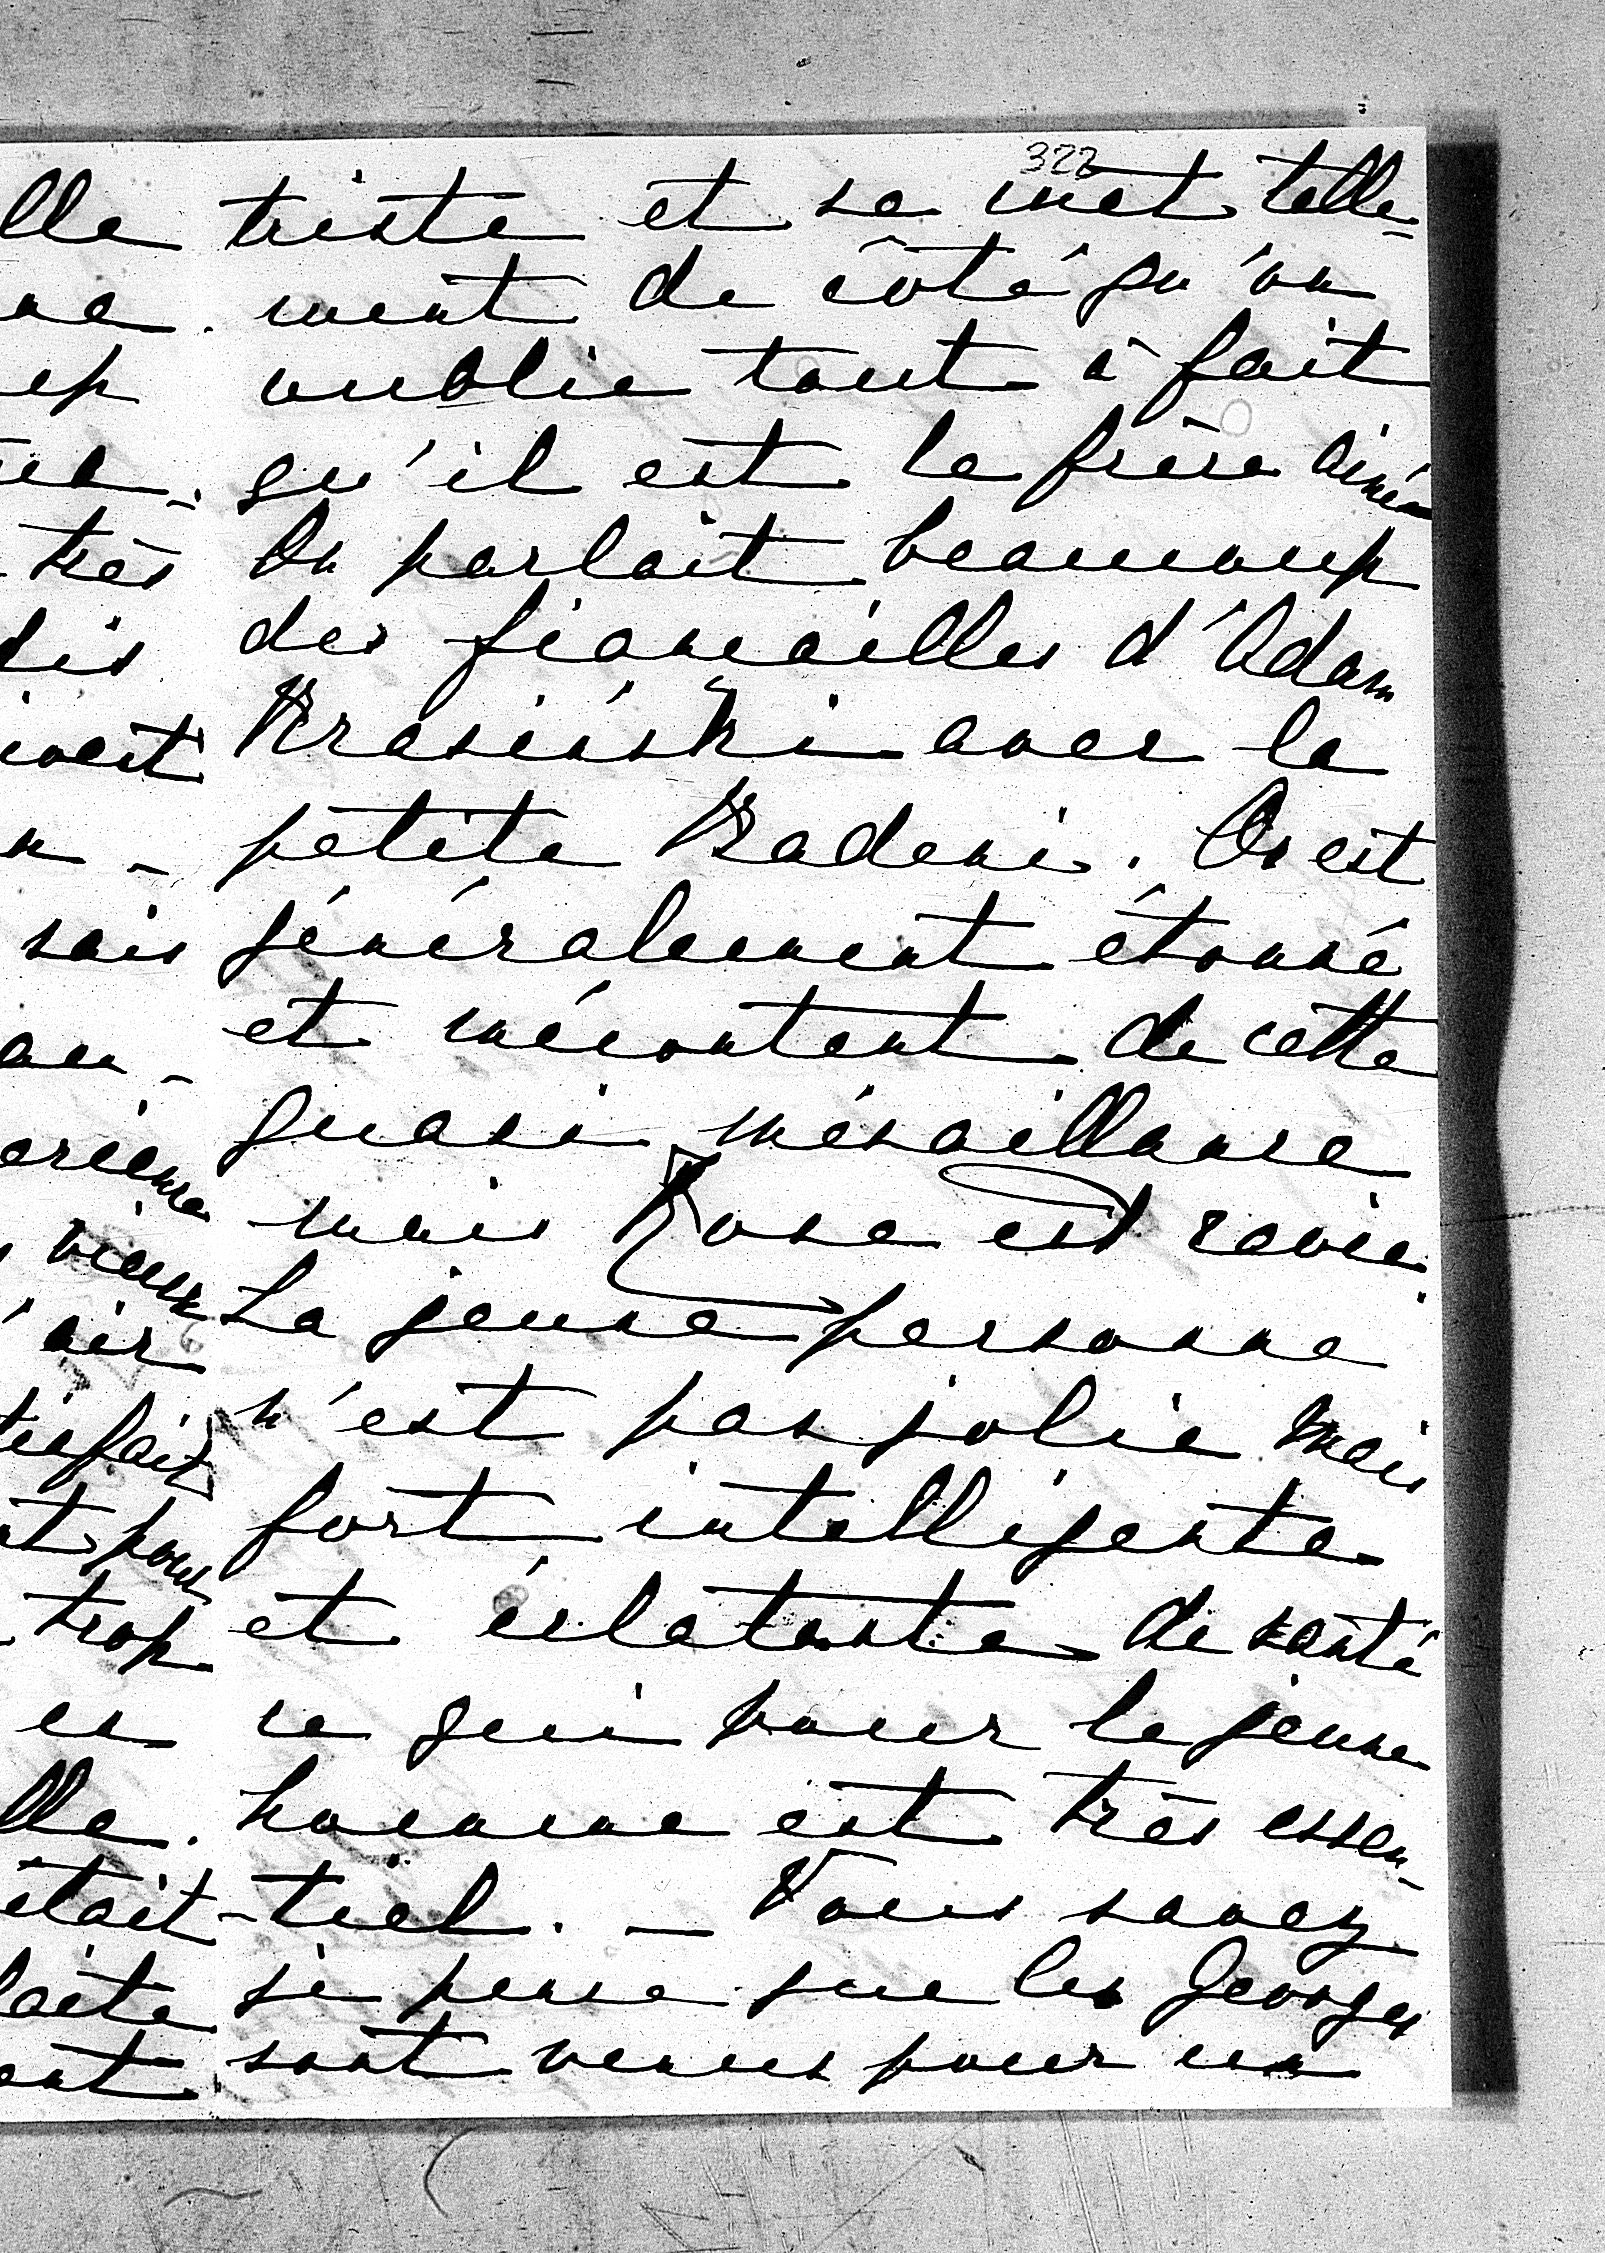 lle
ne.
up
très
dis
n -
sais
au -
vieux
air
tisfait
t pour
trop
es
lle.
était
laite
ent
322
triste et se met telle-
ment de côté qu'on
oublie tout à fait
qu'il est le frère ainé
On parlait beaucoup
des fiançailles d'Adam
Krasiński avec la
petite Badeni. On est
généralement étonné
et mécontent de cette
quasi mésaillance
mais Rose est ravie.
La jeune personne
n'est pas jolie mais
fort intelligente
et éclatante de santé
ce qui pour le jeune
homme est très essen-
tiel. — Vous savez
je pense que les Georges
sont venus pour un